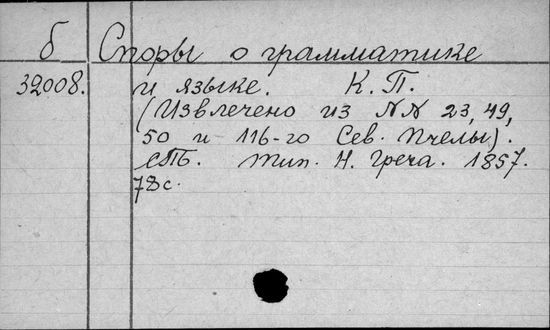 б Споры о грамматике
32008. и языке. К. П.
(Извлечено из NN 23, 49,
50 и 116-го Сев. Пчелы).
СПБ. Тип. Н. Греча. 1857.
78с.